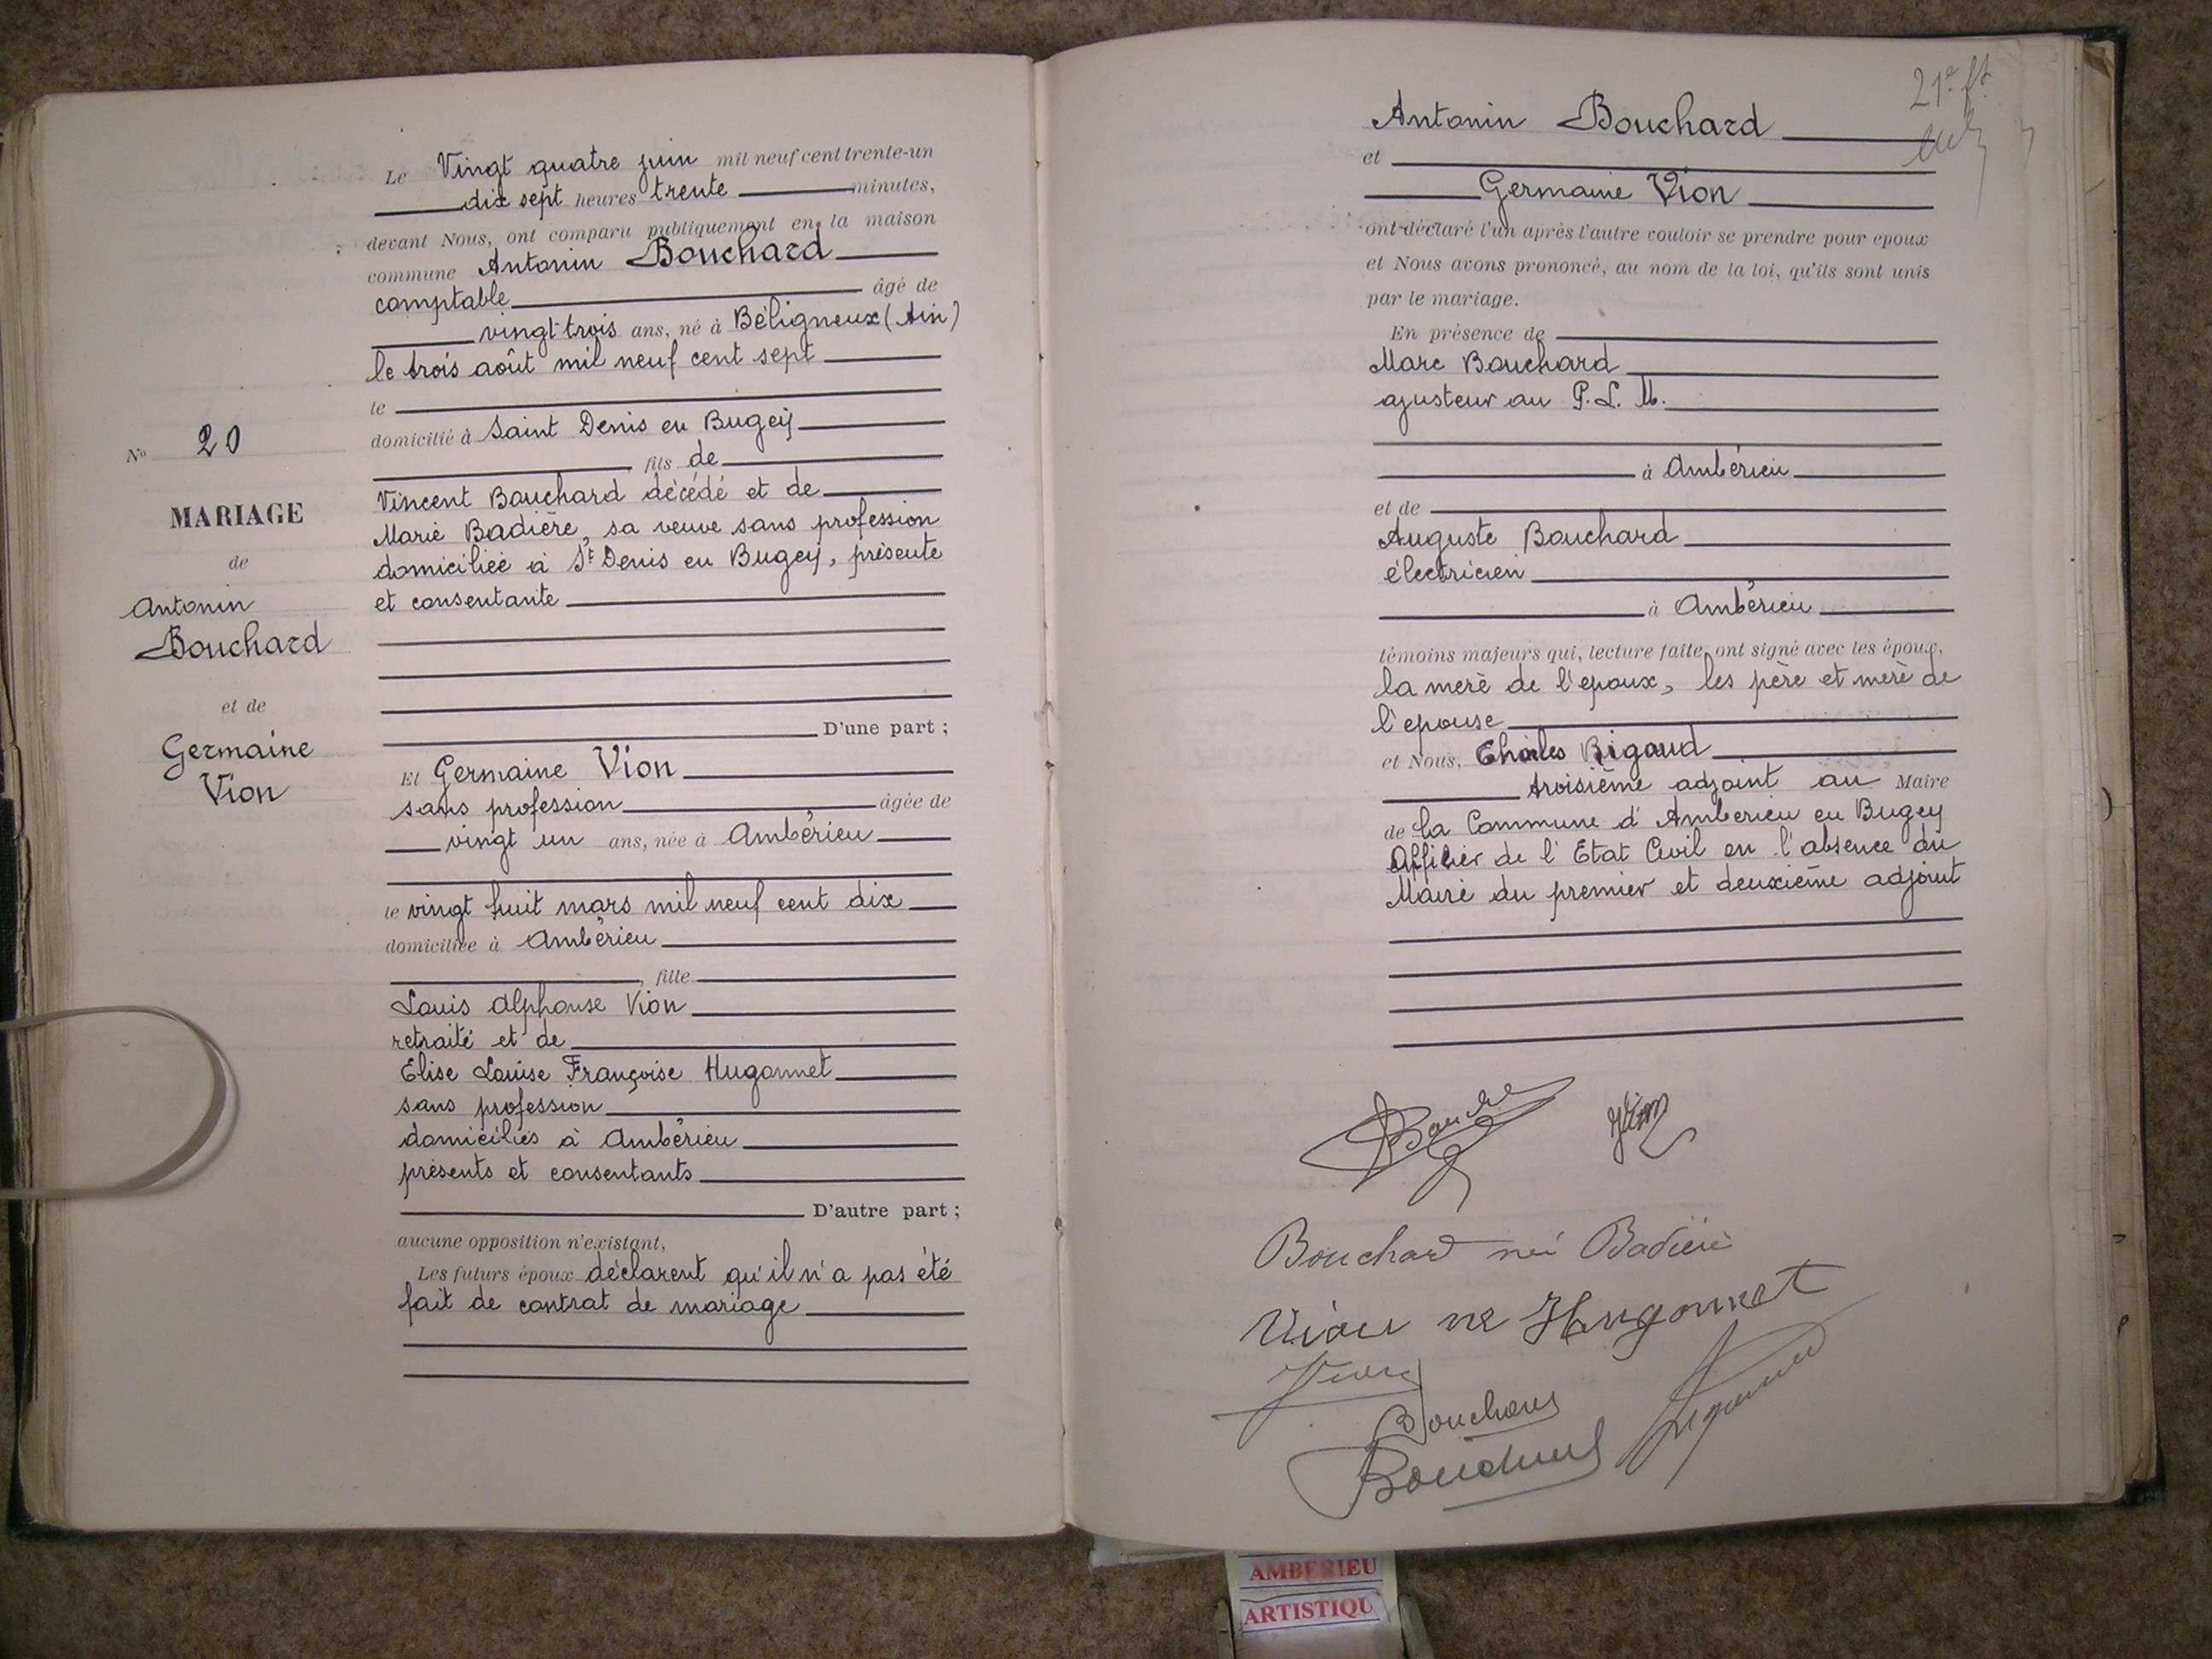 Le Vingt quatre juin mil neuf cent trente-un
dix sept heures trente minutes,
devant Nous, ont comparu publiquement en la maison
commune Antonin Bouchard
comptable âgé de
vingt-trois ans, né à Béligneux (Ain)
le trois août mil neuf cent sept
le
domicilié à Saint Denis en Bugey
fils de
Vincent Bouchard décédé et de
Marie Badière, sa veuve sans profession
domiciliée à St Denis en Bugey, présente
et consentante
D'une part ;
No 20
MARIAGE
de
Antonin
Bouchard
et de
Germaine
Vion
Et Germaine Vion
sans profession âgée de
vingt un ans, née à Ambérieu
le vingt huit mars mil neuf cent dix
domiciliée à Ambérieu
, fille
Louis Alphonse Vion
retraité et de
Elise Louise Françoise Hugonnet
sans profession
domiciliés à Ambérieu
présents et consentants
D'autre part ;
aucune opposition n'existant,
Les futurs époux déclarent qu'il n'a pas été
fait de contrat de mariage
21e ft
Antonin Bouchard
et
Germaine Vion
ont déclaré l'un après l'autre vouloir se prendre pour epoux
et Nous avons prononcé, au nom de la loi, qu'ils sont unis
par le mariage.
En présence de
Marc Bouchard
ajusteur au P. L. M.
à Ambérieu
et de
Auguste Bouchard
électricien
à Ambérieu
témoins majeurs qui, lecture faite, ont signé avec les époux,
la merè de l'epoux, les père et merè de
l'epouse
et Nous, Charles Rigaud
troisième adjoint au Maire
de la Commune d'Amberieu en Bugey
Officier de l'Etat Civil en l'absence du
Maire du premier et deuxième adjoint
Bouchard née Badière
Vion né Hugonnet
Vion
Bouchard
Bouchard
AMBERIEU
ARTISTIQU